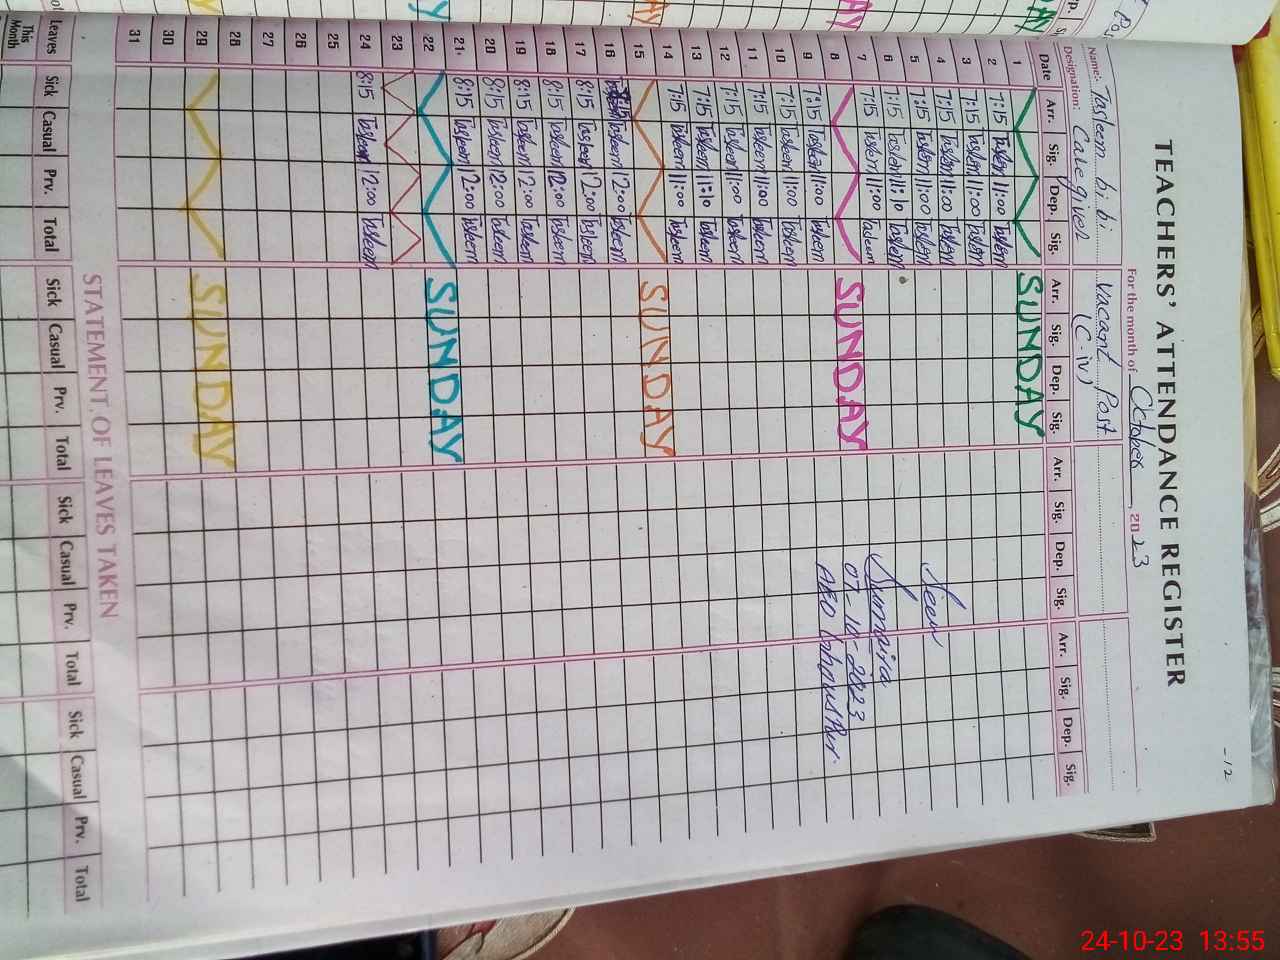 -12
TEACHERS' ATTENDANCE REGISTER
For the month of October, 2023
Name:- Tasleem bi bi Vacant Post
Designation: Care giver (C-iv)
Date Arr. Sig. Dep. Sig. Arr. Sig. Dep. Sig. Arr. Sig. Dep. Sig. Arr. Sig. Dep. Sig.
1 SUNDAY
2 7:15 Tasleem 11:00 Tasleem
3 7:15 Tasleem 11:00 Tasleem
4 7:15 Tasleem 11:00 Tasleem
5 7:15 Tasleem 11:00 Tasleem
6 7:15 Tasleem 11:10 Tasleem
7 7:15 Tasleem 11:00 Tasleem
8 SUNDAY
9 7:15 Tasleem 11:00 Tasleem
10 7:15 Tasleem 11:00 Tasleem
11 7:15 Tasleem 11:00 Tasleem
12 7:15 Tasleem 11:00 Tasleem
13 7:15 Tasleem 11:10 Tasleem
14 7:15 Tasleem 11:00 Tasleem
15 SUNDAY
16 8:15 Tasleem 12:00 Tasleem
17 8:15 Tasleem 12:00 Tasleem
18 8:15 Tasleem 12:00 Tasleem
19 8:15 Tasleem 12:00 Tasleem
20 8:15 Tasleem 12:00 Tasleem
21 8:15 Tasleem 12:00 Tasleem
22 SUNDAY
23
24 8:15 Tasleem 12:00 Tasleem
25
26
27
28
29 SUNDAY
30
31
Seen
Sumaira
07-10-2023
AEO
STATEMENT OF LEAVES TAKEN
Leaves Sick Casual Prv. Total Sick Casual Prv. Total Sick Casual Prv. Total Sick Casual Prv. Total
This Month
24-10-23 13:55